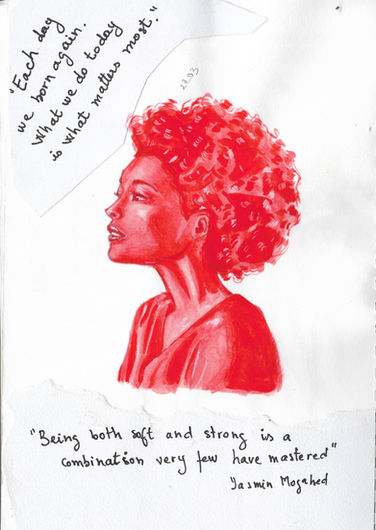 "Each day
we born again.
What we do today
is what matters most."
27.03
"Being both soft and strong is a
combination very few have mastered"
Yasmin Mogahed